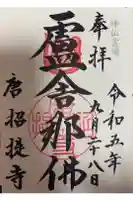 奉拝
令和五年
九月二十八日
盧舎那仏
唐招提寺